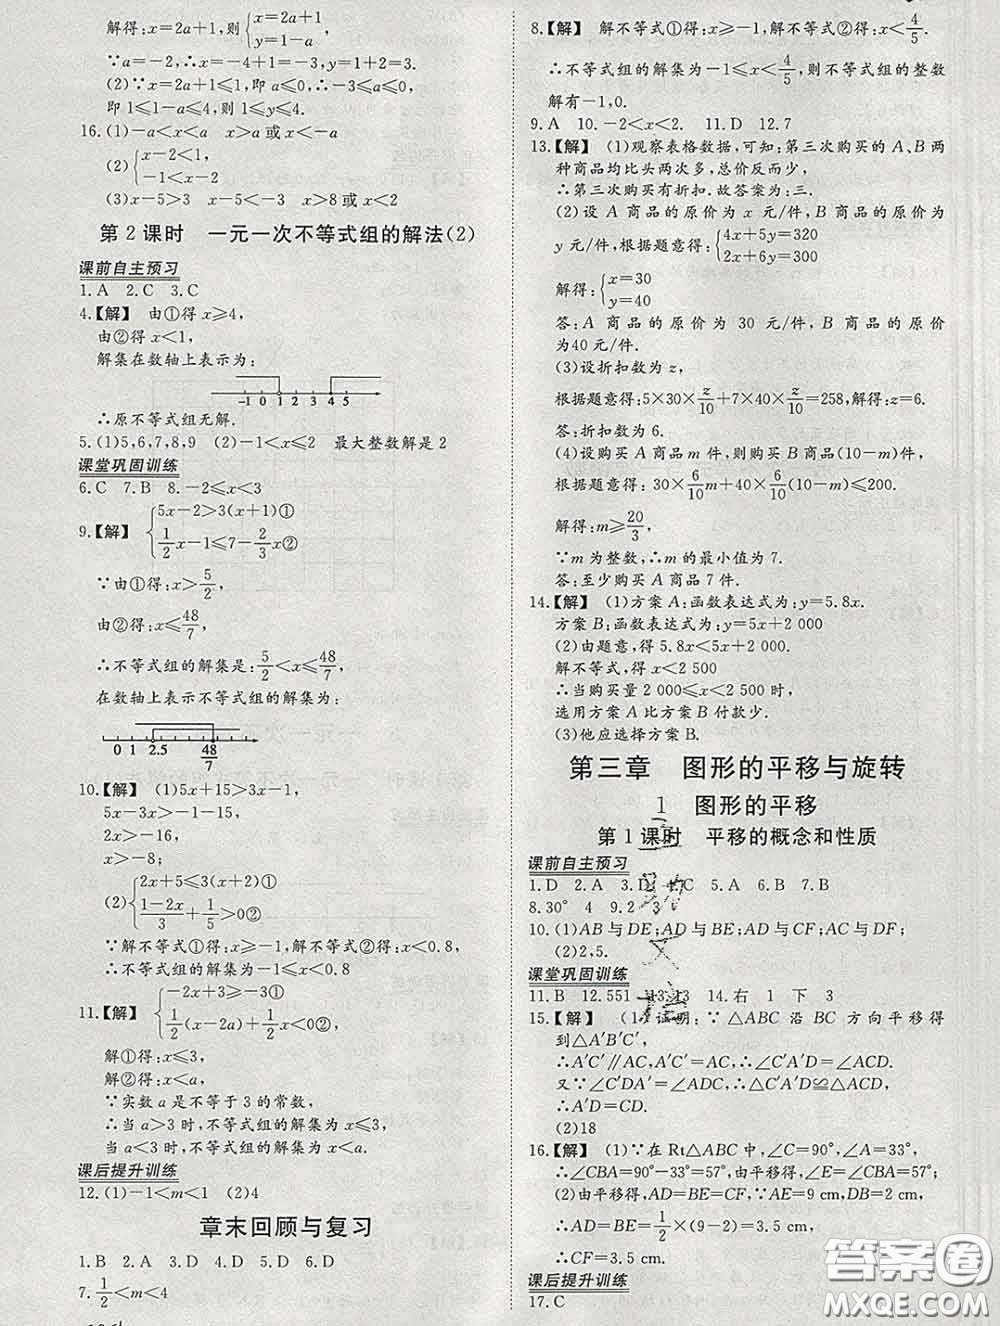 解得:x=2a+1,则{x=2a+1
y=1-a
∵a=-2,∴x=-4+1=-3,y=1+2=3.
(2)∵x=2a+1≤1,即 a≤0,∴-3≤a≤0,
即 1≤1-a≤4,则 1≤y≤4.
16.(1)-a<x<a x>a 或 x<-a
(2){x-2<1,
-1<x-2
(3)x-5>3 x-5<-3 x>8 或 x<2
第 2 课时 一元一次不等式组的解法(2)
课前自主预习
1.A 2.C 3.C
4.【解】 由①得 x≥4,
由②得 x<1,
解集在数轴上表示为:
-1 0 1 2 3 4 5
∴原不等式组无解.
5.(1)5,6,7,8,9 (2)-1<x≤2 最大整数解是 2
课堂巩固训练
6.C 7.B 8.-2≤x<3
9.【解】 {5x-2>3(x+1)①
1/2x-1≤7-2/3x②
∵由①得:x>5/2,
由②得:x≤48/7
∴不等式组的解集是:5/2<x≤48/7
在数轴上表示不等式组的解集为:
0 1 2.5 48/7
10.【解】 (1)5x+15>3x-1,
5x-3x>-1-15,
2x>-16,
x>-8;
(2){2x+5≤3(x+2)①
1-2x/3+1/5>0②
∵解不等式①得:x≥-1,解不等式②得:x<0.8,
∴不等式组的解集为-1≤x<0.8
11.【解】 {-2x+3≥-3①
1/2(x-2a)+1/2x<0②,
解①得:x≤3,
解②得:x<a,
∵实数 a 是不等于 3 的常数,
∴当 a>3 时,不等式组的解集为 x≤3,
当 a<3 时,不等式组的解集为 x<a.
课后提升训练
12.(1)-1<m<1 (2)4
章末回顾与复习
1.B 2.A 3.D 4.D 5.D 6.D
7.1/2<m<4
8.【解】 解不等式①得:x≥-1,解不等式②得:x<4/5.
∴不等式组的解集为-1≤x<4/5,则不等式组的整数
解有-1,0.
9.A 10.-2<x<2. 11.D 12.7
13.【解】 (1)观察表格数据,可知:第三次购买的 A、B 两
种商品均比头两次多,总价反而少,
∴第三次购买有折扣.故答案为:三.
(2)设 A 商品的原价为 x 元/件,B 商品的原价为
y 元/件,根据题意得:{4x+5y=320
2x+6y=300
解得:{x=30
y=40
答:A 商品的原价为 30 元/件,B 商品的原价
为40 元/件.
(3)设折扣数为 z,
根据题意得:5×30×z/10+7×40×z/10=258,解得:z=6.
答:折扣数为 6.
(4)设购买 A 商品 m 件,则购买 B 商品(10-m)件,
根据题意得:30×6/10m+40×6/10(10-m)≤200.
解得:m≥20/3,
∵m 为整数,∴m 的最小值为 7.
答:至少购买 A 商品 7 件.
14.【解】 (1)方案 A:函数表达式为:y=5.8x.
方案 B;函数表达式为:y=5x+2 000
(2)由题意,得 5.8x<5x+2 000
解不等式,得 x<2 500
∴当购买量 2 000≤x<2 500 时,
选用方案 A 比方案 B 付款少.
(3)他应选择方案 B.
第三章 图形的平移与旋转
1 图形的平移
第 1 课时 平移的概念和性质
课前自主预习
1.D 2.A 3.D C 5.A 6.B 7.B
8.30° 4 9.2 3 1
10.(1)AB 与 DE;AD 与 BE;AD 与 CF;AC 与 DF;
(2)2,5.
课堂巩固训练
11.B 12.551 13.13 14.右 1 下 3
15.【解】 (1)证明:∵△ABC 沿 BC 方向平移得
到△A′B′C′,
∴A′C′∥AC,A′C′=AC,∴∠C′A′D=∠ACD.
又∵∠C′DA′=∠ADC,∴△A′C′D≌△CAD,
∴A′D=CD.
(2)18
16.【解】 (1)∵在 Rt△ABC 中,∠C=90°,∠A=33°,
∴∠CBA=90°-33°=57°,由平移得,∠E=∠CBA=57°.
(2)由平移得,AD=BE=CF,∵AE=9 cm,DB=2 cm,
∴AD=BE=1/2×(9-2)=3.5 cm,
∴CF=3.5 cm.
课后提升训练
17.C
答案圈
MXQE.COM